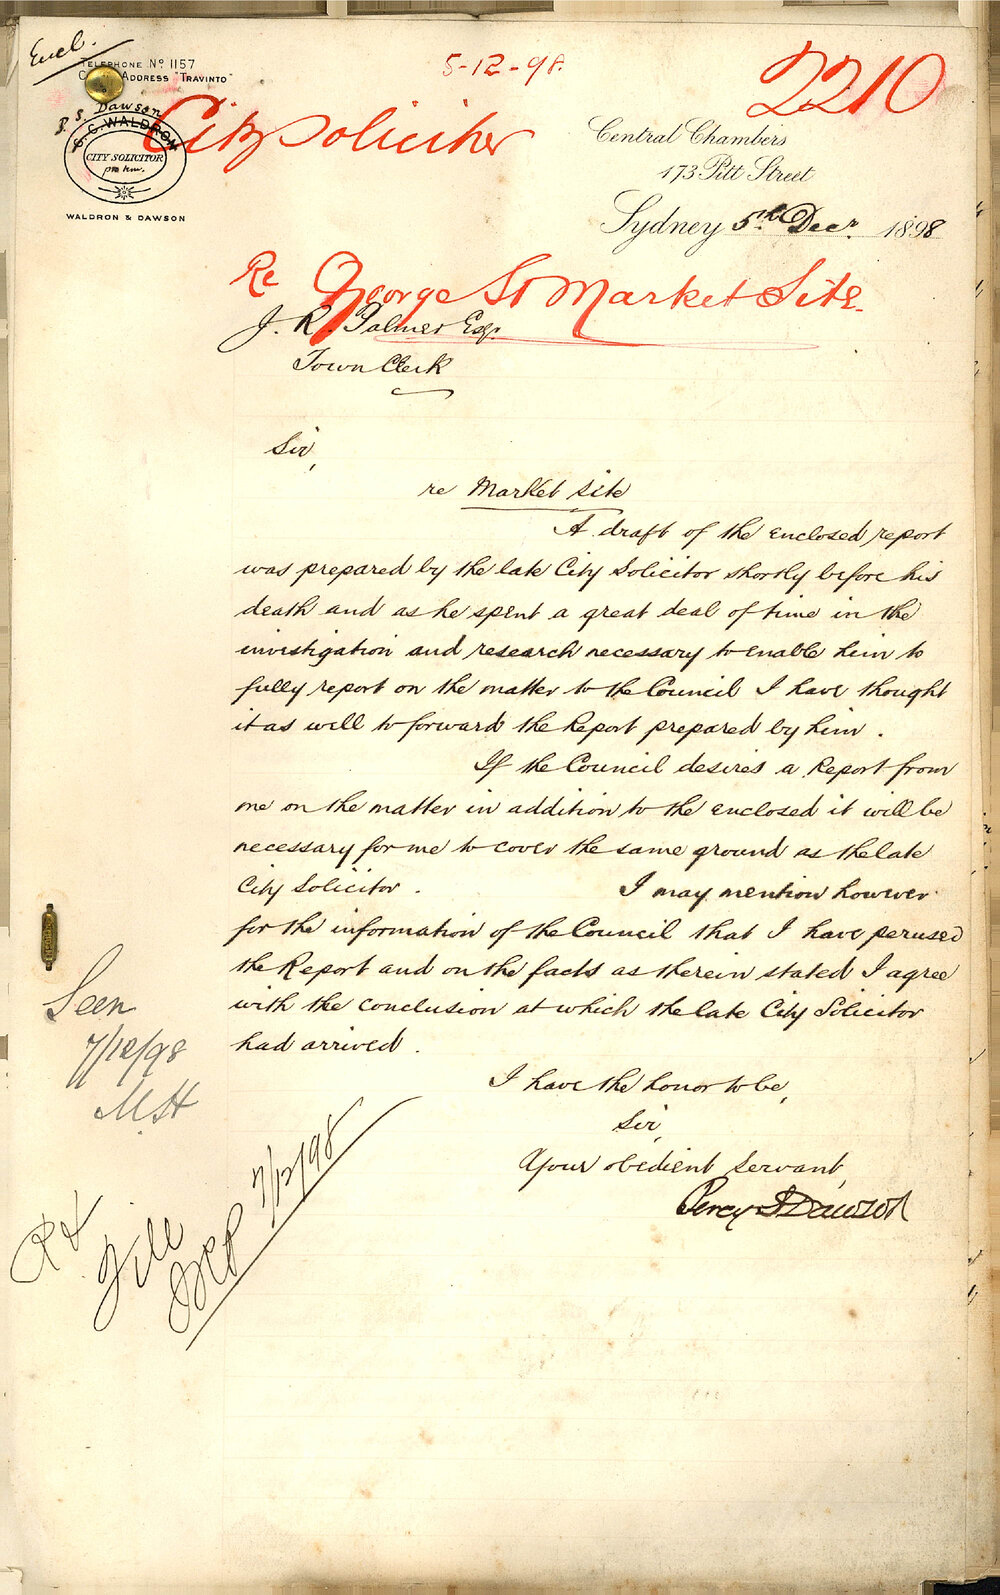 Encl.
TELEPHONE No 1157
ADDRESS "TRAVINTO"
5-12-98.
2210
City Solicitor
P. S. Dawson
G. C. WALDRON
CITY SOLICITOR
pro tem.
WALDRON & DAWSON
Central Chambers
173 Pitt Street
Sydney 5th Decr. 1898
Re George St Market Site.
J. R. Palmer Esqr
Town Clerk
Sir,
re Market Site
A draft of the enclosed report
was prepared by the late City Solicitor shortly before his
death and as he spent a great deal of time in the
investigation and research necessary to enable him to
fully report on the matter to the Council I have thought
it as well to forward the Report prepared by him.
If the Council desires a Report from
me on the matter in addition to the enclosed it will be
necessary for me to cover the same ground as the late
City Solicitor. I may mention however
for the information of the Council that I have perused
the Report and on the facts as therein stated I agree
with the conclusion at which the late City Solicitor
had arrived.
I have the honor to be,
Sir,
Your obedient Servant,
Percy S Dawson
Seen
7/12/98
M.H
7/12/98